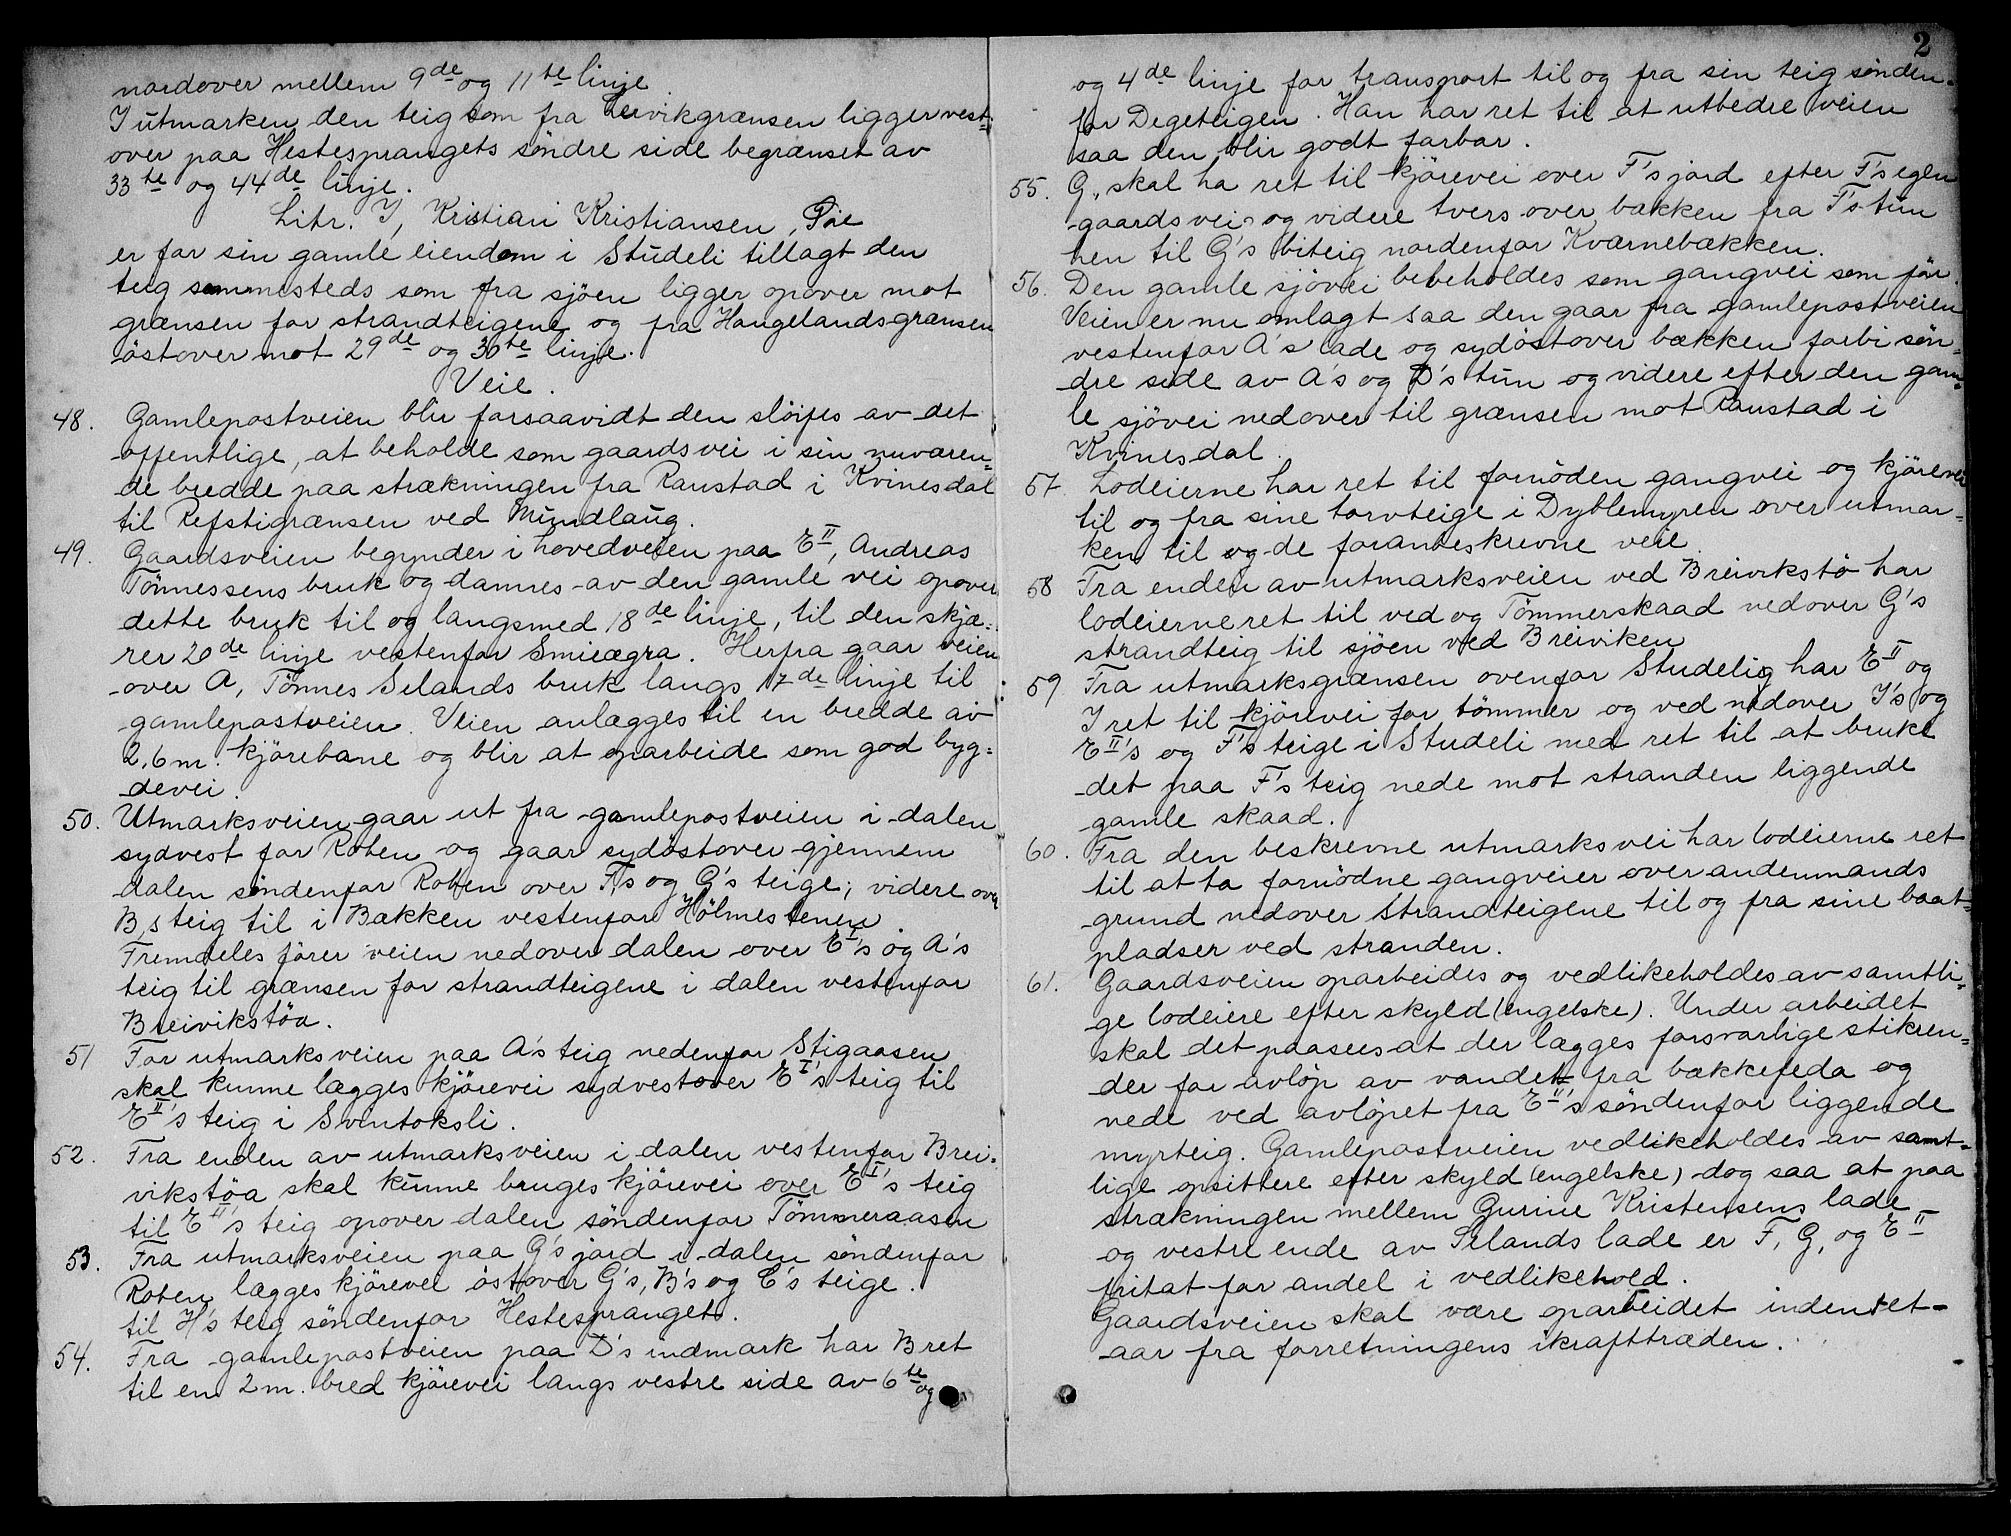 nordover mellem 9de og 11te linje.
I utmarken den teig som fra Leevikgrænsen ligger vest-
over paa Hestesprangets søndre side begrænset av
33te og 44de linje.
Litr. I, Kristian Kristiansen, Øie
er for sin gamle eiendom i Studeli tillagt den
teig sammesteds som fra sjöen ligger opover mot
grænsen for strandteigene og fra Haugelandsgrænsen
östover mot 29de og 30te linje.
Veie.
48. Gamlepostveien blir forsaavidt den slöifes av det
offentlige, at beholde som gaardsvei i sin nuværen-
de bredde paa strækningen fra Raustad i Kvinesdal
til Refstigrænsen ved Mundlaug.
49. Gaardsveien begynder i hovedveien paa E II, Andreas
Tönnessens bruk og dannes av den gamle vei opover
dette bruk til og langsmed 18de linje, til den skjæ-
rer 20de linje vestenfor Smieægra. Herfra gaar veien
over A, Tönnes Selands bruk langs 17de linje til
gamlepostveien. Veien anlægges til en bredde av
2,6 m. kjörebane og blir at oparbeide som god byg-
devei.
50. Utmarksveien gaar ut fra gamlepostveien i dalen
sydvest for Roten og gaar sydöstover gjennem
dalen söndenfor Roten over F's og G's teige; videre over
B,s teig til i Bækken vestenfor Hölmestenen.
Fremdeles förer veien nedover dalen over E I's og A's
teig til grænsen for strandteigene i dalen vestenfor
Breivikstöa.
51 For utmarksveien paa A's teig nedenfor Stigaasen
skal kunne lægges kjörevei sydvestover E I's teig til
E II's teig i Svintoksli.
52. Fra enden av utmarksveien i dalen vestenfor Brei-
vikstöa skal kunne bruges kjörevei over E I's teig
til E II's teig opover dalen söndenfor Tömmeraasen
53. Fra utmarksveien paa G's jord i dalen söndenfor
Roten lægges kjörevei östover G's, B's og C's teige.
til H's teig söndenfor Hestespranget.
54. Fra gamlepostveien paa D's indmark har B ret
til en 2 m. bred kjörevei langs vestre side av 6te og
2
og 4de linje for transport til og fra sin teig sönden-
for Degeteigen. Han har ret til at utbedre veien
saa den blir godt farbar.
55. G, skal ha ret til kjörevei over F's jord efter F's egen
gaardsvei og videre tvers over bækken fra F's tun
hen til G's biteig nordenfor Kværnebækken.
56. Den gamle sjövei bibeholdes som gangvei som för.
Veien er nu omlagt saa den gaar fra gamlepostveien
vestenfor A's lade og sydöstover bækken forbi sön-
dre side av A's og D's tun og videre efter den gam-
le sjövei nedover til grænsen mot Raustad i
Kvinesdal.
57. Lodeierne har ret til fornöden gangvei og kjörevei
til og fra sine torvteige i Dyblemyren over utmar-
ken til og de foranbeskrevne veie.
58 Fra enden av utmarksveien ved Breivikstö har
lodeierne ret til ved og Tömmerskaad nedover G's
strandteig til sjöen ved Breiviken
59 Fra utmarksgrænsen ovenfor Studelig har E II og
I ret til kjörevei for tömmer og ved nedover I's og
E II's og F's teige i Studeli med ret til at bruke
det paa F's teig nede mot stranden liggende
gamle skaad.
60. Fra den beskrevne utmarksvei har lodeierne ret
til at ta fornödne gangveier over andenmands
grund nedover Strandteigene til og fra sine baat-
pladser ved stranden.
61. Gaardsveien oparbeides og vedlikeholdes av samtli-
ge lodeiere efter skyld (engelske). Under arbeidet
skal det paasees at der lægges forsvarlige stikren-
der for avlöp av vandet fra bækkefeda og
nede ved avlöpet fra E II's söndenfor liggende
myrteig. Gamlepostveien vedlikeholdes av samt-
lige opsittere efter skyld (engelske) dog saa at paa
strækningen mellem Gurine Kristensens lade
og vestre ende av Selands lade er F, G, og E II
fritat for andel i vedlikehold.
Gaardsveien skal være oparbeidet inden et-
aar fra forretningens ikrafttræden.